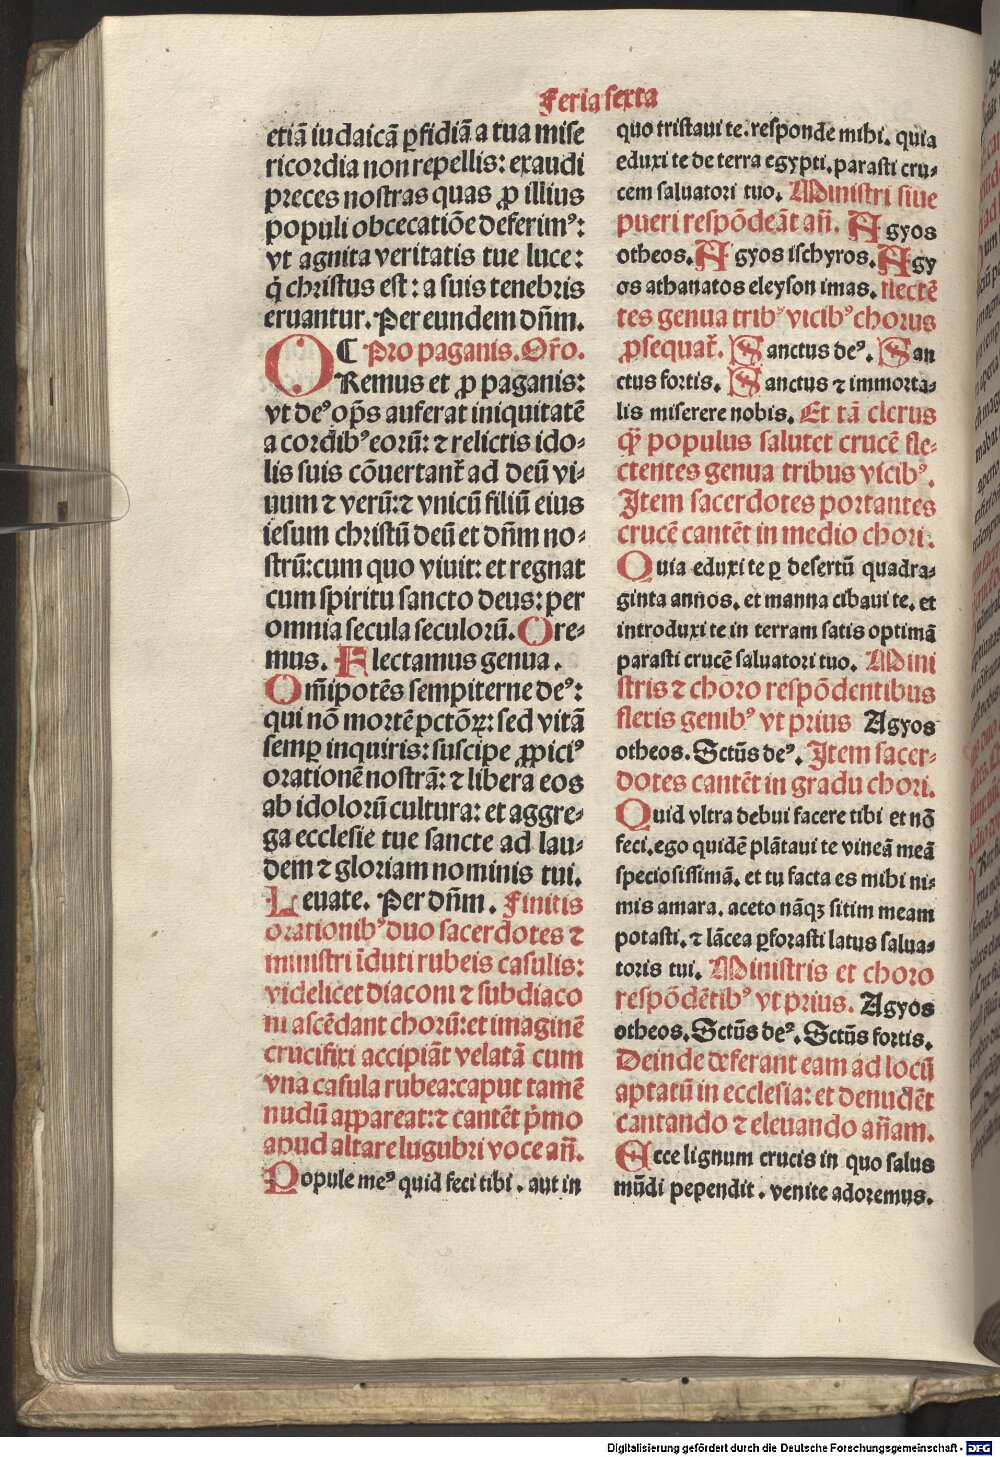 Feria sexta
etiā iudaicā ꝑfidiā a tua mise
ricordia non repellis: exaudi
preces nostras quas ꝓ illius
populi obcecatiōe deferimꝰ:
vt agnita veritatis tue luce:
q̇ christus est: a suis tenebris
eruantur. Per eundem dn̄m.
⸿ Pro paganis. Or̄o.
ORemus et ꝓ paganis:
vt deꝰ op̄s auferat iniquitatē
a cordibꝰ eorū: ⁊ relictis ido⸗
lis suis cōuertant᷑ ad deū vi⸗
uum ⁊ verū: ⁊ vnicū filiū eius
iesum christū deū et dn̄m no⸗
strū: cum quo viuit: et regnat
cum spiritu sancto deus: per
omnia secula seculorū. Ore⸗
mus. Flectamus genua.
Om̄ipotēs sempiterne deꝰ:
qui nō mortē pctōꝝ: sed vitā
semꝑ inquiris: suscipe ꝓpiciꝰ
orationē nostrā: ⁊ libera eos
ab idolorū cultura: et aggre⸗
ga ecclesie tue sancte ad lau⸗
dem ⁊ gloriam nominis tui.
Leuate. Per dn̄m. Finitis
orationibꝰ duo sacerdotes ⁊
ministri īduti rubeis casulis:
videlicet diaconi ⁊ subdiaco
ni ascēdant chorū: et imaginē
crucifixi accipiāt velatā cum
vna casula rubea: caput tamē
nudū appareat: ⁊ cantēt p̄mo
apud altare lugubri voce an̄.
Popule meꝰ quid feci tibi. aut in
quo tristaui te. responde mihi. quia
eduxi te de terra egypti. parasti cru⸗
cem saluatori tuo. Ministri siue
pueri respōdeāt an̄. Agyos
otheos. Agyos ischyros. Agy
os athanatos eleyson imas. flectē
tes genua tribꝰ vicibꝰ chorus
ꝓsequat᷑. Sanctus deꝰ. San
ctus fortis. Sanctus ⁊ immorta⸗
lis miserere nobis. Et tā clerus
qꝫ populus salutet crucē fle⸗
ctentes genua tribus vicibꝰ.
Item sacerdotes portantes
crucē cantēt in medio chori.
Quia eduxi te ꝑ desertū quadra⸗
ginta annos. et manna cibaui te. et
introduxi te in terram satis optimā
parasti crucē saluatori tuo. Mini
stris ⁊ choro respōdentibus
flexis genibꝰ vt prius Agyos
otheos. Sctūs deꝰ. Item sacer⸗
dotes cantēt in gradu chori.
Quid vltra debui facere tibi et nō
feci. ego quidē plātaui te vineā meā
speciosissimā. et tu facta es mihi ni⸗
mis amara. aceto nāqꝫ sitim meam
potasti. ⁊ lācea ꝑforasti latus salua⸗
toris tui. Ministris et choro
respōdētibꝰ vt prius. Agyos
otheos. Sctūs deꝰ. Sctūs fortis.
Deinde deferant eam ad locū
aptatū in ecclesia: et denudēt
cantando ⁊ eleuando an̄am.
Ecce lignum crucis in quo salus
mūdi pependit. venite adoremus.
Digitalisierung gefördert durch die Deutsche Forschungsgemeinschaft - DFG